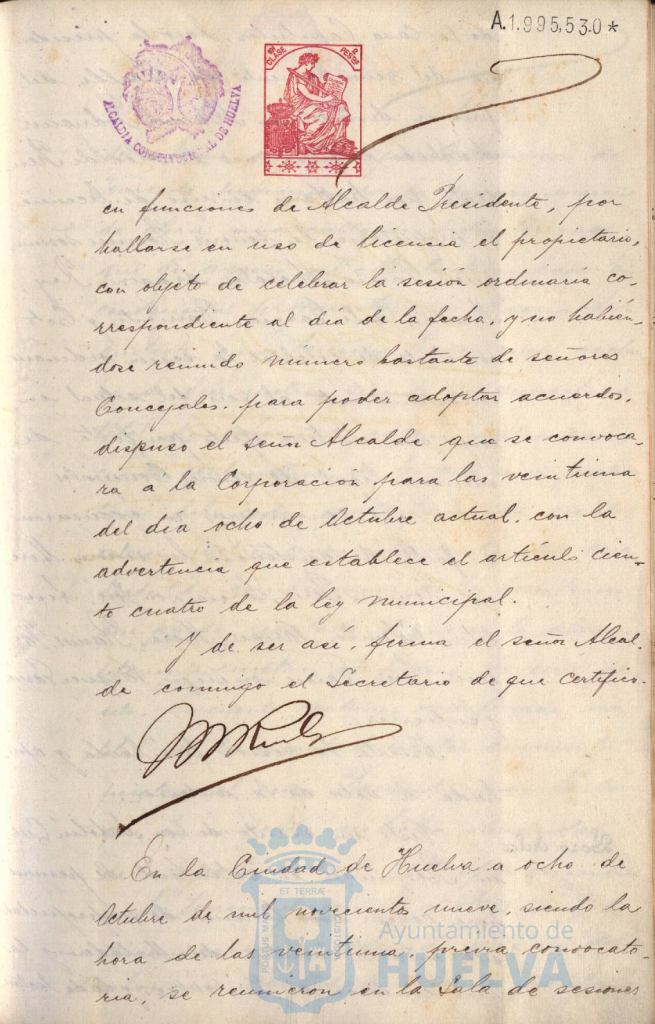 A.1.995,530*
CLASE PESETAS
ALCALDIA CONSTITUCIONAL DE HUELVA
en funciones de Alcalde Presidente, por
hallarse en uso de licencia el propietario,
con objeto de celebrar la sesión ordinaria co-
rrespondiente al día de la fecha, y no habién-
dose reunido número bastante de señores
Concejales, para poder adoptar acuerdos,
dispuso el señor Alcalde que se convoca-
ra a la Corporación para las veintiuna
del día ocho de Octubre actual, con la
advertencia que establece el artículo cien-
to cuatro de la ley municipal.
Y de ser así, firma el señor Alcal-
de conmigo el Secretario de que certifico.
En la Ciudad de Huelva a ocho de
Octubre de mil novecientos nueve, siendo la
hora de las veintiuna, previa convocato-
ria, se reunieron en la Sala de sesiones
Ayuntamiento de
HUELVA